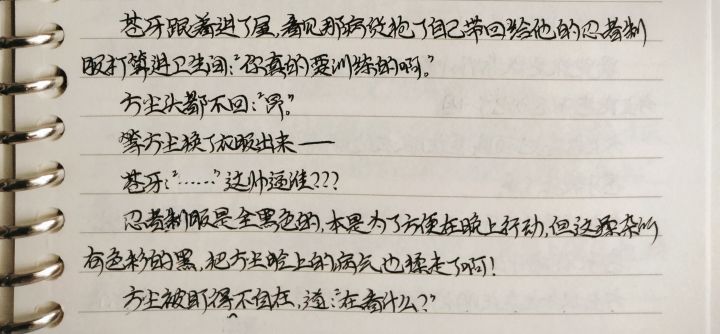 苍牙跟着进了屋，看见那病弱抱了自己带回给他的忍者制
服打算进卫生间："你真的要训练的啊。"
方尘头都不回："昂。"
等方尘换了衣服出来——
苍牙："……"这帅逼谁???
忍者制服是全黑色的，本是为了方便在晚上行动，但这糅杂所
有色彩的黑，把方尘脸上的病气也揉走了啊!
方尘被盯得不自在，道："在看什么?"